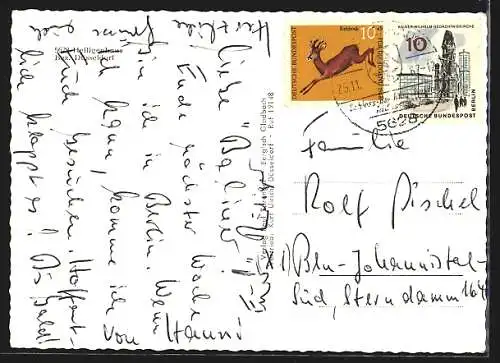 5628 Heiligenhaus
Bez. Düsseldorf
Liebe "Berliner"!
Ende nächster Woche
bin ich in Berlin. Wenn
ich kann, komme ich
Euch besuchen. Hoffent-
lich klappt es! Bis bald!
Herzliche
Hanni
Verlag Bergisch Gladbach
Vertrieb: Karl Ulrich, Düsseldorf - Ruf 19148
Rehbock
10
DEUTSCHE BUNDESPOST
KAISER-WILHELM-GEDÄCHTNISKIRCHE
10
DEUTSCHE BUNDESPOST
BERLIN
5628
Familie
Rolf Pischel
(1) Bln-Johannisthal-
Süd, Sterndamm 164